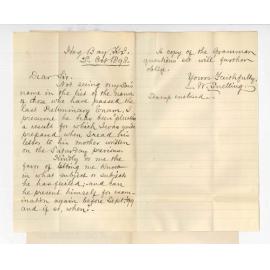 Hog Bay, K.I.
Oct 1898
Dear Sir,
Not seeing my
name in the list of the names
of those who had passed the
last Preliminary Exam. I
presume he has been plucked
a result for which I was quite
prepared, when I read his
letter to his mother written
on the Saturday previous.
Kindly do me the
favor of letting me know
in what subject or subjects
he has failed, and can
he present himself for exam-
ination again before Sept. 99
and if so, when;
A copy of the Grammar
questions set will further
oblige.
Yours faithfully,
W. Snelling
Stamp enclosed